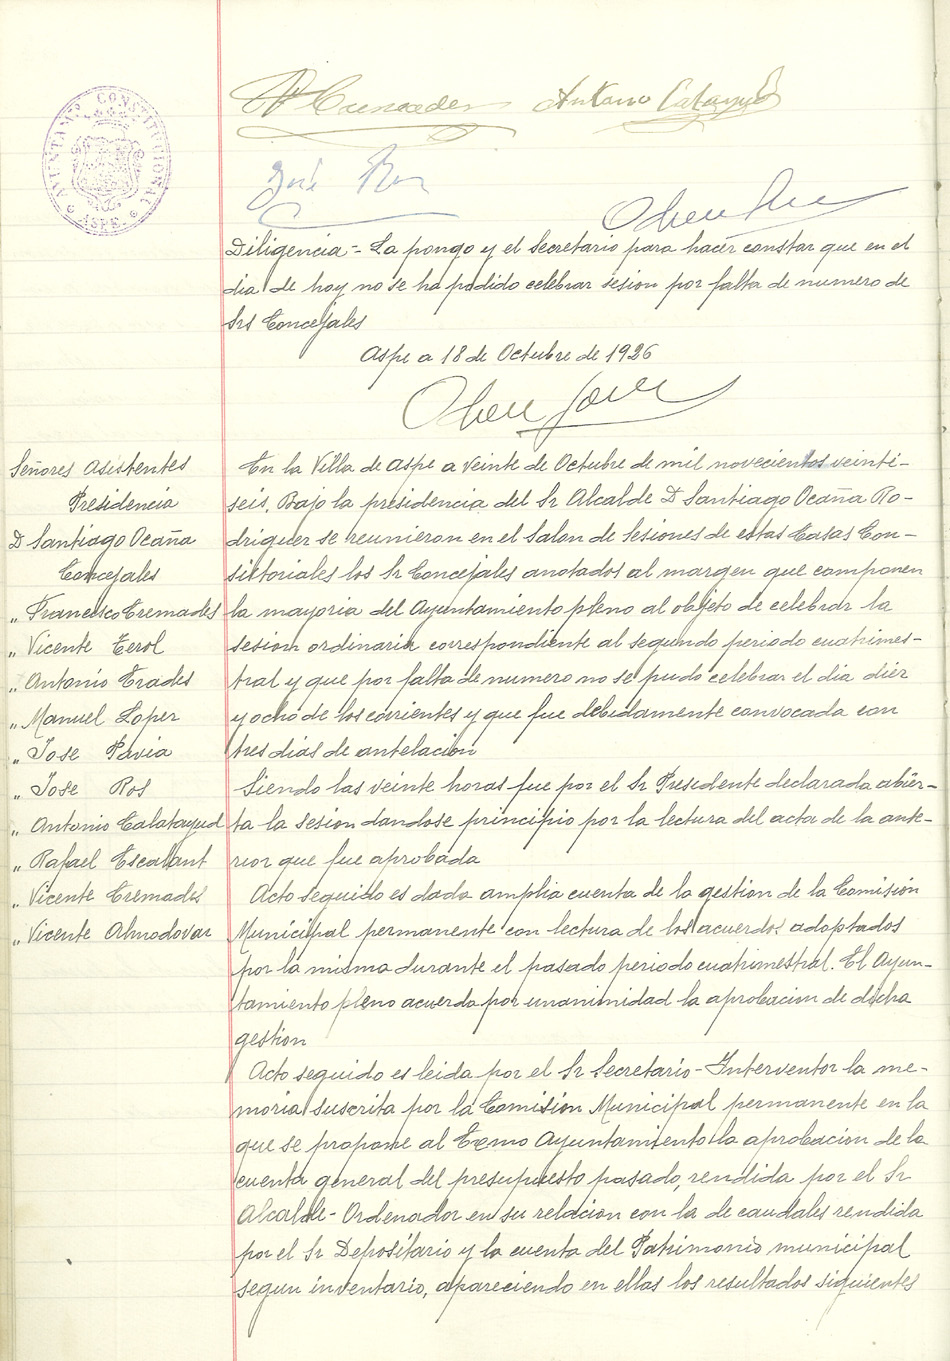 AYUNTAMIENTO CONSTITUCIONAL
ASPE
V Cremades Antonio Calatayud
José Ros
Diligencia - La pongo yo el Secretario para hacer constar que en el
dia de hoy no se ha podido celebrar sesion por falta de numero de
Srs Concejales
Aspe a 18 de Octubre de 1926
Señores Asistentes
Presidencia
D Santiago Ocaña
Concejales
„ Francisco Cremades
„ Vicente Cerol
„ Antonio Prades
„ Manuel Lopez
„ Jose Pavia
„ Jose Ros
„ Antonio Calatayud
„ Rafael Escalant
„ Vicente Cremades
„ Vicente Almodovar
En la Villa de Aspe a veinte de Octubre de mil novecientos veinti-
seis, Bajo la presidencia del Sr Alcalde D Santiago Ocaña Ro-
driguez se reunieron en el Salon de Sesiones de estas Casas Con-
sistoriales los Sr Concejales anotados al margen que componen
la mayoria del Ayuntamiento pleno al objeto de celebrar la
sesion ordinaria correspondiente al segundo periodo cuatrimes-
tral y que por falta de numero no se pudo celebrar el dia diez
y ocho de los corrientes y que fue debidamente convocada con
tres dias de antelacion
Siendo las veinte horas fue por el Sr Presidente declarada abier-
ta la sesion dandose principio por la lectura del acta de la ante-
rior que fue aprobada
Acto seguido es dada amplia cuenta de la gestion de la Comisión
Municipal permanente con lectura de los acuerdos adoptados
por la misma durante el pasado periodo cuatrimestral. El Ayun-
tamiento pleno acuerda por unanimidad la aprobacion de dicha
gestion
Acto seguido es leida por el Sr Secretario-Interventor la me-
moria suscrita por la Comisión Municipal permanente en la
que se propone al Excmo Ayuntamiento la aprobacion de la
cuenta general del presupuesto pasado, rendida por el Sr
Alcalde-Ordenador en su relacion con la de caudales rendida
por el Sr Depositario y la cuenta del Patrimonio municipal
segun inventario, apareciendo en ellas los resultados siguientes